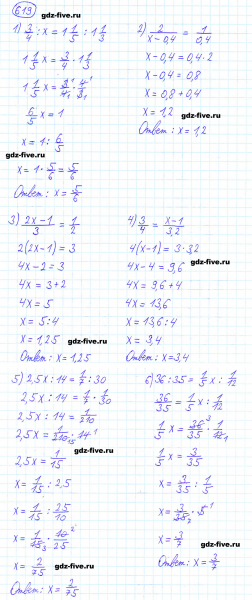 619
gdz-five.ru
1) 3/4 : x = 1 1/5 : 1 1/3
1 1/5 x = 3/4 · 1 1/3
1 1/5 x = 3/4 · 4/3
6/5 x = 1
x = 1 : 6/5
x = 1 · 5/6 = 5/6
Ответ: x = 5/6
2) 2/(x - 0,4) = 1/0,4
x - 0,4 = 0,4 · 2
x - 0,4 = 0,8
x = 0,8 + 0,4
x = 1,2
Ответ: x = 1,2
3) (2x - 1)/3 = 1/2
2(2x - 1) = 3
4x - 2 = 3
4x = 3 + 2
4x = 5
x = 5 : 4
x = 1,25
Ответ: x = 1,25
4) 3/4 = (x - 1)/3,2
4(x - 1) = 3 · 3,2
4x - 4 = 9,6
4x = 9,6 + 4
4x = 13,6
x = 13,6 : 4
x = 3,4
Ответ: x = 3,4
5) 2,5x : 14 = 1/7 : 30
2,5x : 14 = 1/7 · 1/30
2,5x : 14 = 1/210
2,5x = 1/210 · 14
2,5x = 1/15
x = 1/15 : 2,5
x = 1/15 : 25/10
x = 1/15 · 10/25
x = 2/75
Ответ: x = 2/75
6) 36 : 35 = 1/5 x : 1/12
36/35 = 1/5 x : 1/12
1/5 x = 36/35 · 1/12
1/5 x = 3/35
x = 3/35 : 1/5
x = 3/35 · 5
x = 3/7
Ответ: x = 3/7
gdz-five.ru